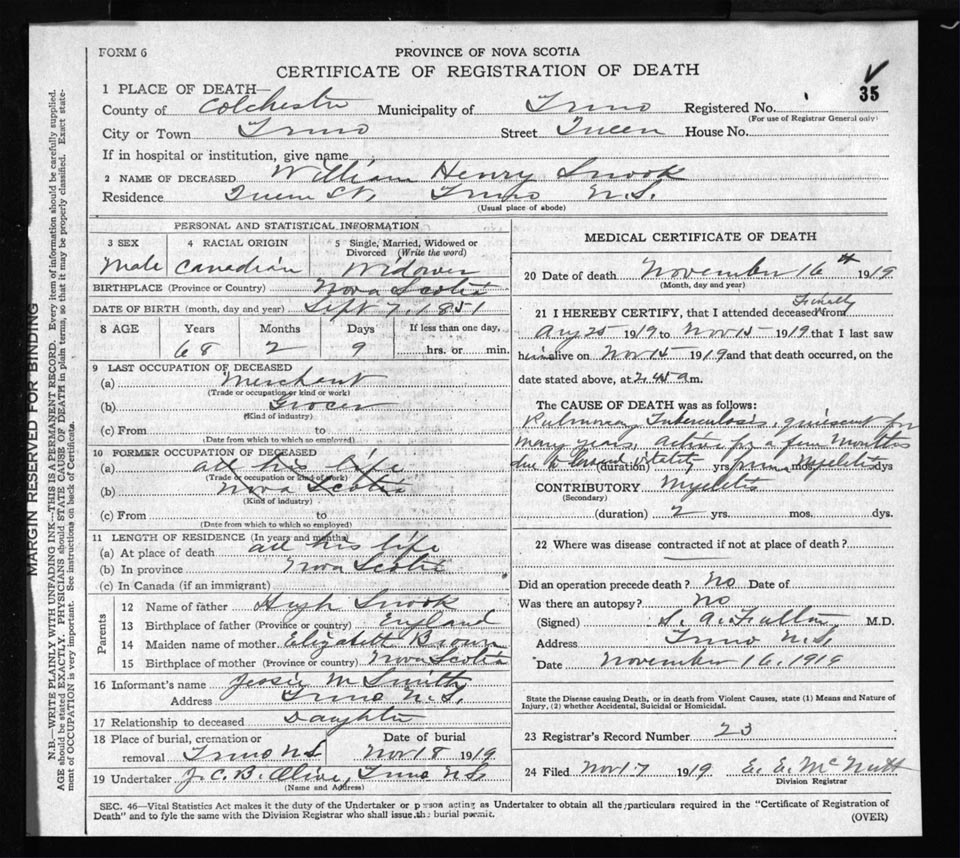 FORM 6
PROVINCE OF NOVA SCOTIA
CERTIFICATE OF REGISTRATION OF DEATH
35
1 PLACE OF DEATH—
County of Colchester Municipality of Truro Registered No.
(For use of Registrar General only)
City or Town Truro Street Queen House No.
If in hospital or institution, give name
2 NAME OF DECEASED William Henry Snook
Residence Queen St. Truro N.S.
(Usual place of abode)
PERSONAL AND STATISTICAL INFORMATION
3 SEX 4 RACIAL ORIGIN 5 Single, Married, Widowed or Divorced (Write the word)
Male Canadian Widower
BIRTHPLACE (Province or Country) Nova Scotia
DATE OF BIRTH (month, day and year) Sept 7, 1851
8 AGE Years Months Days If less than one day,
68 2 9 hrs. or min.
9 LAST OCCUPATION OF DECEASED
(a) Merchant
(Trade or occupation or kind or work)
(b) Grocer
(Kind of industry)
(c) From to
(Date from which to which so employed)
10 FORMER OCCUPATION OF DECEASED
(a) all his life
(Trade or occupation or kind of work)
(b) Nova Scotia
(Kind of industry)
(c) From to
(Date from which to which so employed)
11 LENGTH OF RESIDENCE (In years and months)
(a) At place of death all his life
(b) In province Nova Scotia
(c) In Canada (if an immigrant)
Parents
12 Name of father Hugh Snook
13 Birthplace of father (Province or country) England
14 Maiden name of mother Elizabeth Brown
15 Birthplace of mother (Province or country) Nova Scotia
16 Informant's name Jessie M Smith
Address Truro N.S.
17 Relationship to deceased Daughter
18 Place of burial, cremation or removal Truro NS Date of burial Nov 18 1919
19 Undertaker J. C. B. Olive, Truro NS
(Name and Address)
MEDICAL CERTIFICATE OF DEATH
20 Date of death November 16th 1919
(Month, day and year)
21 I HEREBY CERTIFY, that I attended deceased from
Aug 25 1919 to Nov 15 1919 that I last saw
him alive on Nov 15 1919 and that death occurred, on the
date stated above, at 2.45 a m.
The CAUSE OF DEATH was as follows:
Pulmonary Tuberculosis, quiescent for
many years, active for a few months
due to lowered vitality from Myelitis
(duration) yrs. mos. dys
CONTRIBUTORY Myelitis
(Secondary)
(duration) 2 yrs. mos. dys.
22 Where was disease contracted if not at place of death?
Did an operation precede death? No Date of
Was there an autopsy? No
(Signed) S. A. Fulton M.D.
Address Truro N.S.
Date November 16, 1919
State the Disease causing Death, or in death from Violent Causes, state (1) Means and Nature of
Injury, (2) whether Accidental, Suicidal or Homicidal.
23 Registrar's Record Number 23
24 Filed Nov 17 1919 E. E. McNutt
Division Registrar
SEC. 46—Vital Statistics Act makes it the duty of the Undertaker or person acting as Undertaker to obtain all the particulars required in the "Certificate of Registration of
Death" and to fyle the same with the Division Registrar who shall issue the burial permit.
(OVER)
MARGIN RESERVED FOR BINDING
N.B.—WRITE PLAINLY WITH UNFADING INK—THIS IS A PERMANENT RECORD. Every item of information should be carefully supplied.
AGE should be stated EXACTLY. PHYSICIANS should STATE CAUSE OF DEATH in plain terms, so that it may be properly classified. Exact state-
ment of OCCUPATION is very important. See instructions on back of Certificate.